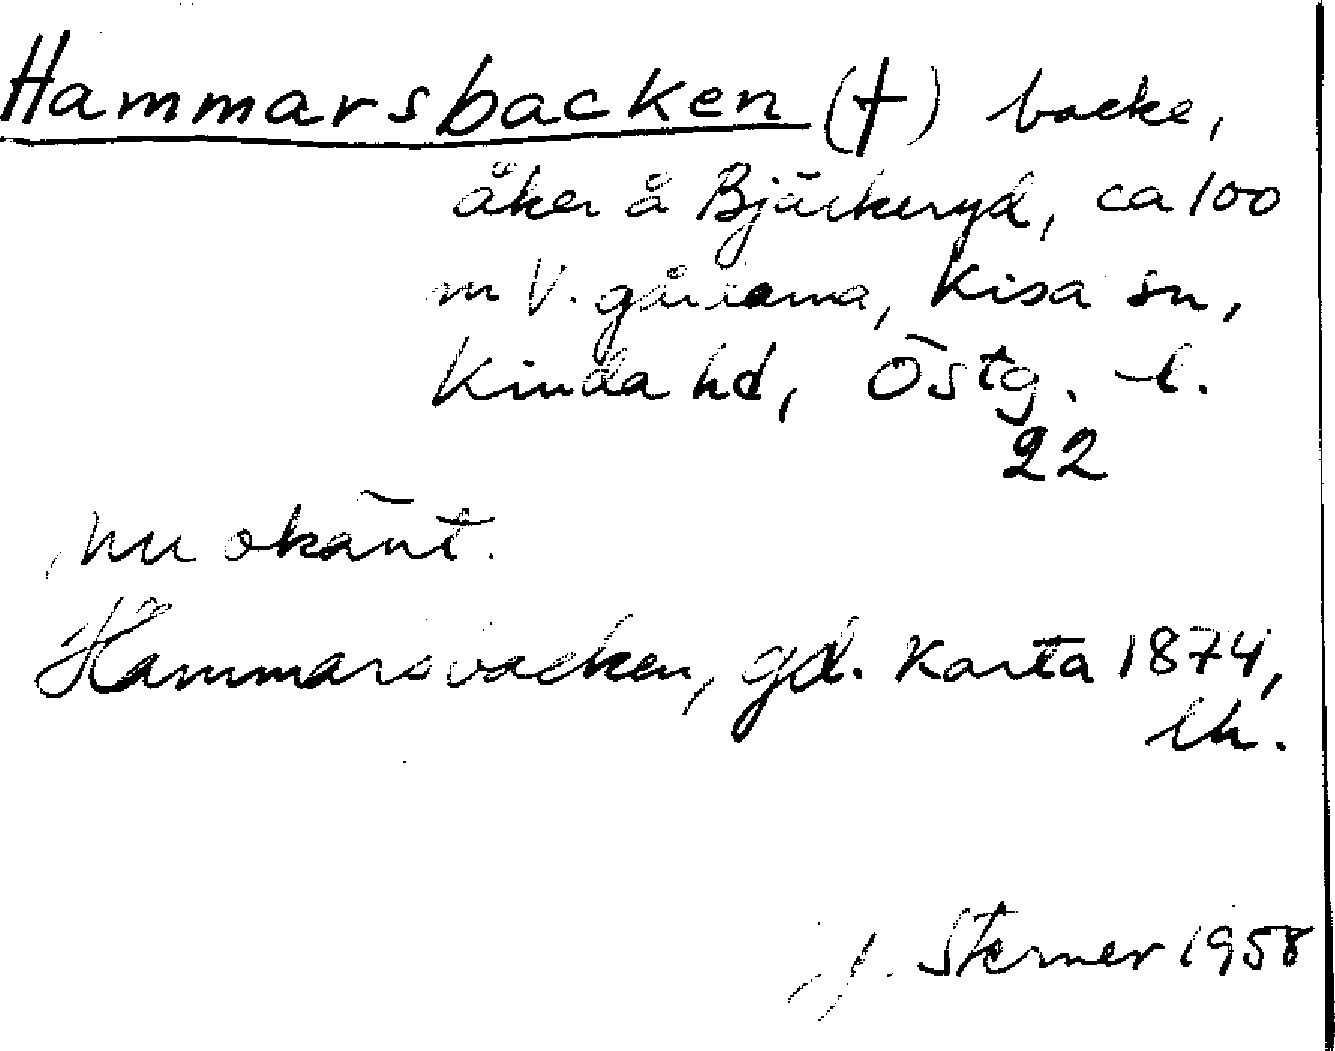 Hammarsbacken (†) backe,
åker å Bjärkeryd, ca 100
m V. gårdarna, Kisa sn,
Kinda hd, Östg. l.
22
nu okänt.
Hammarsbacken, gd. Karta 1874,
lh.
J. Sterner 1958